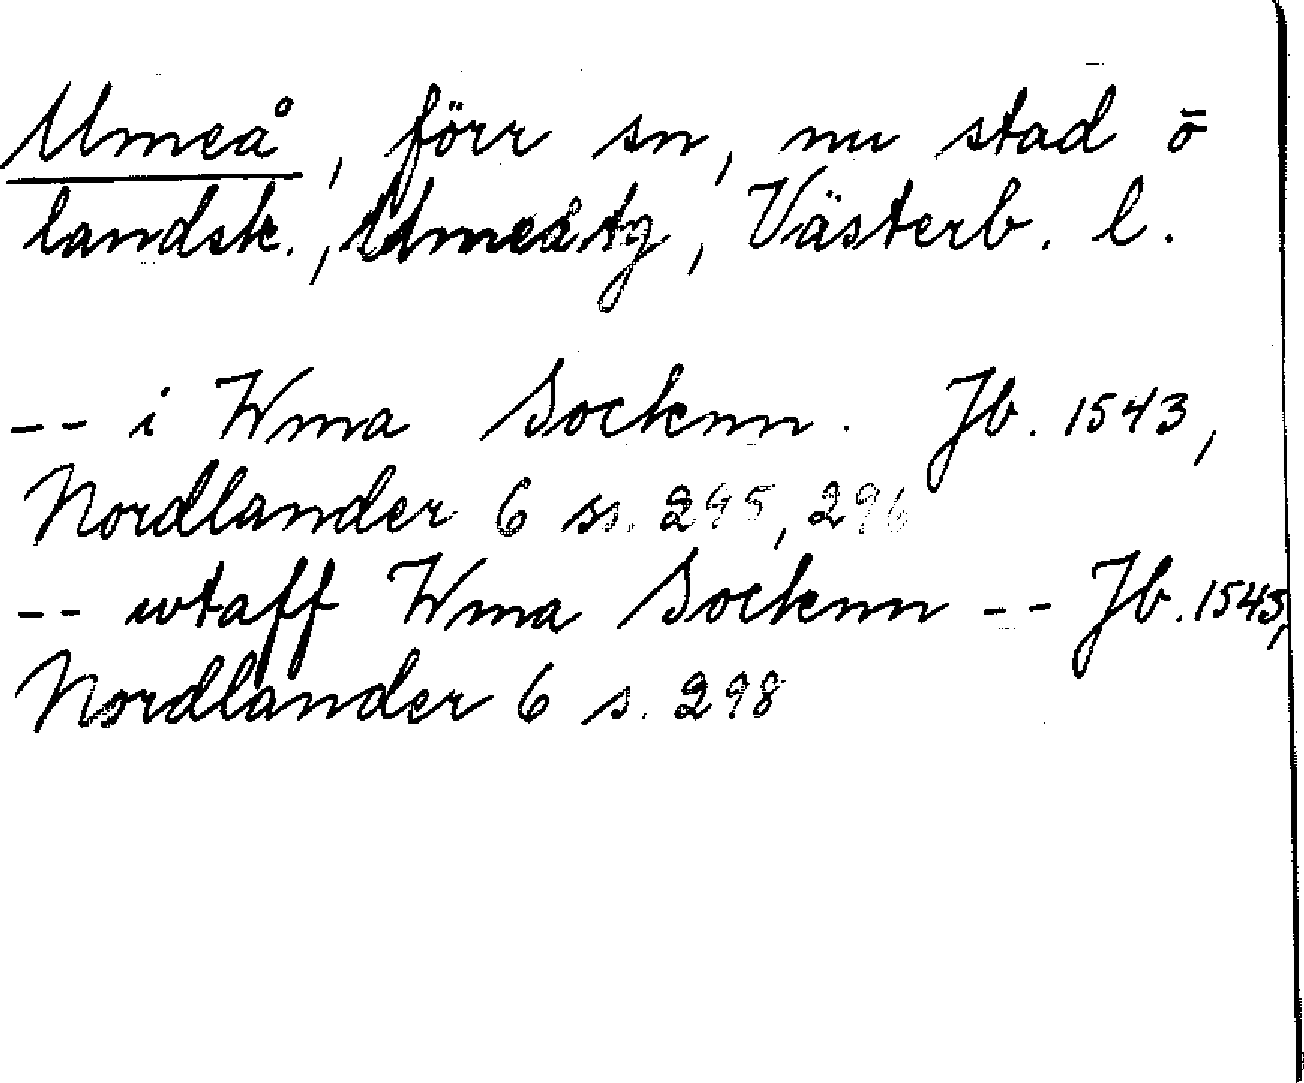 Umeå, förr sn, nu stad o
landsk., Umeå tg, Västerb. l.
-- i Wma Socknn. Jb. 1543,
Nordlander 6 ss. 295, 296
-- wtaff Wma Socknn -- Jb. 1543,
Nordlander 6 s. 298